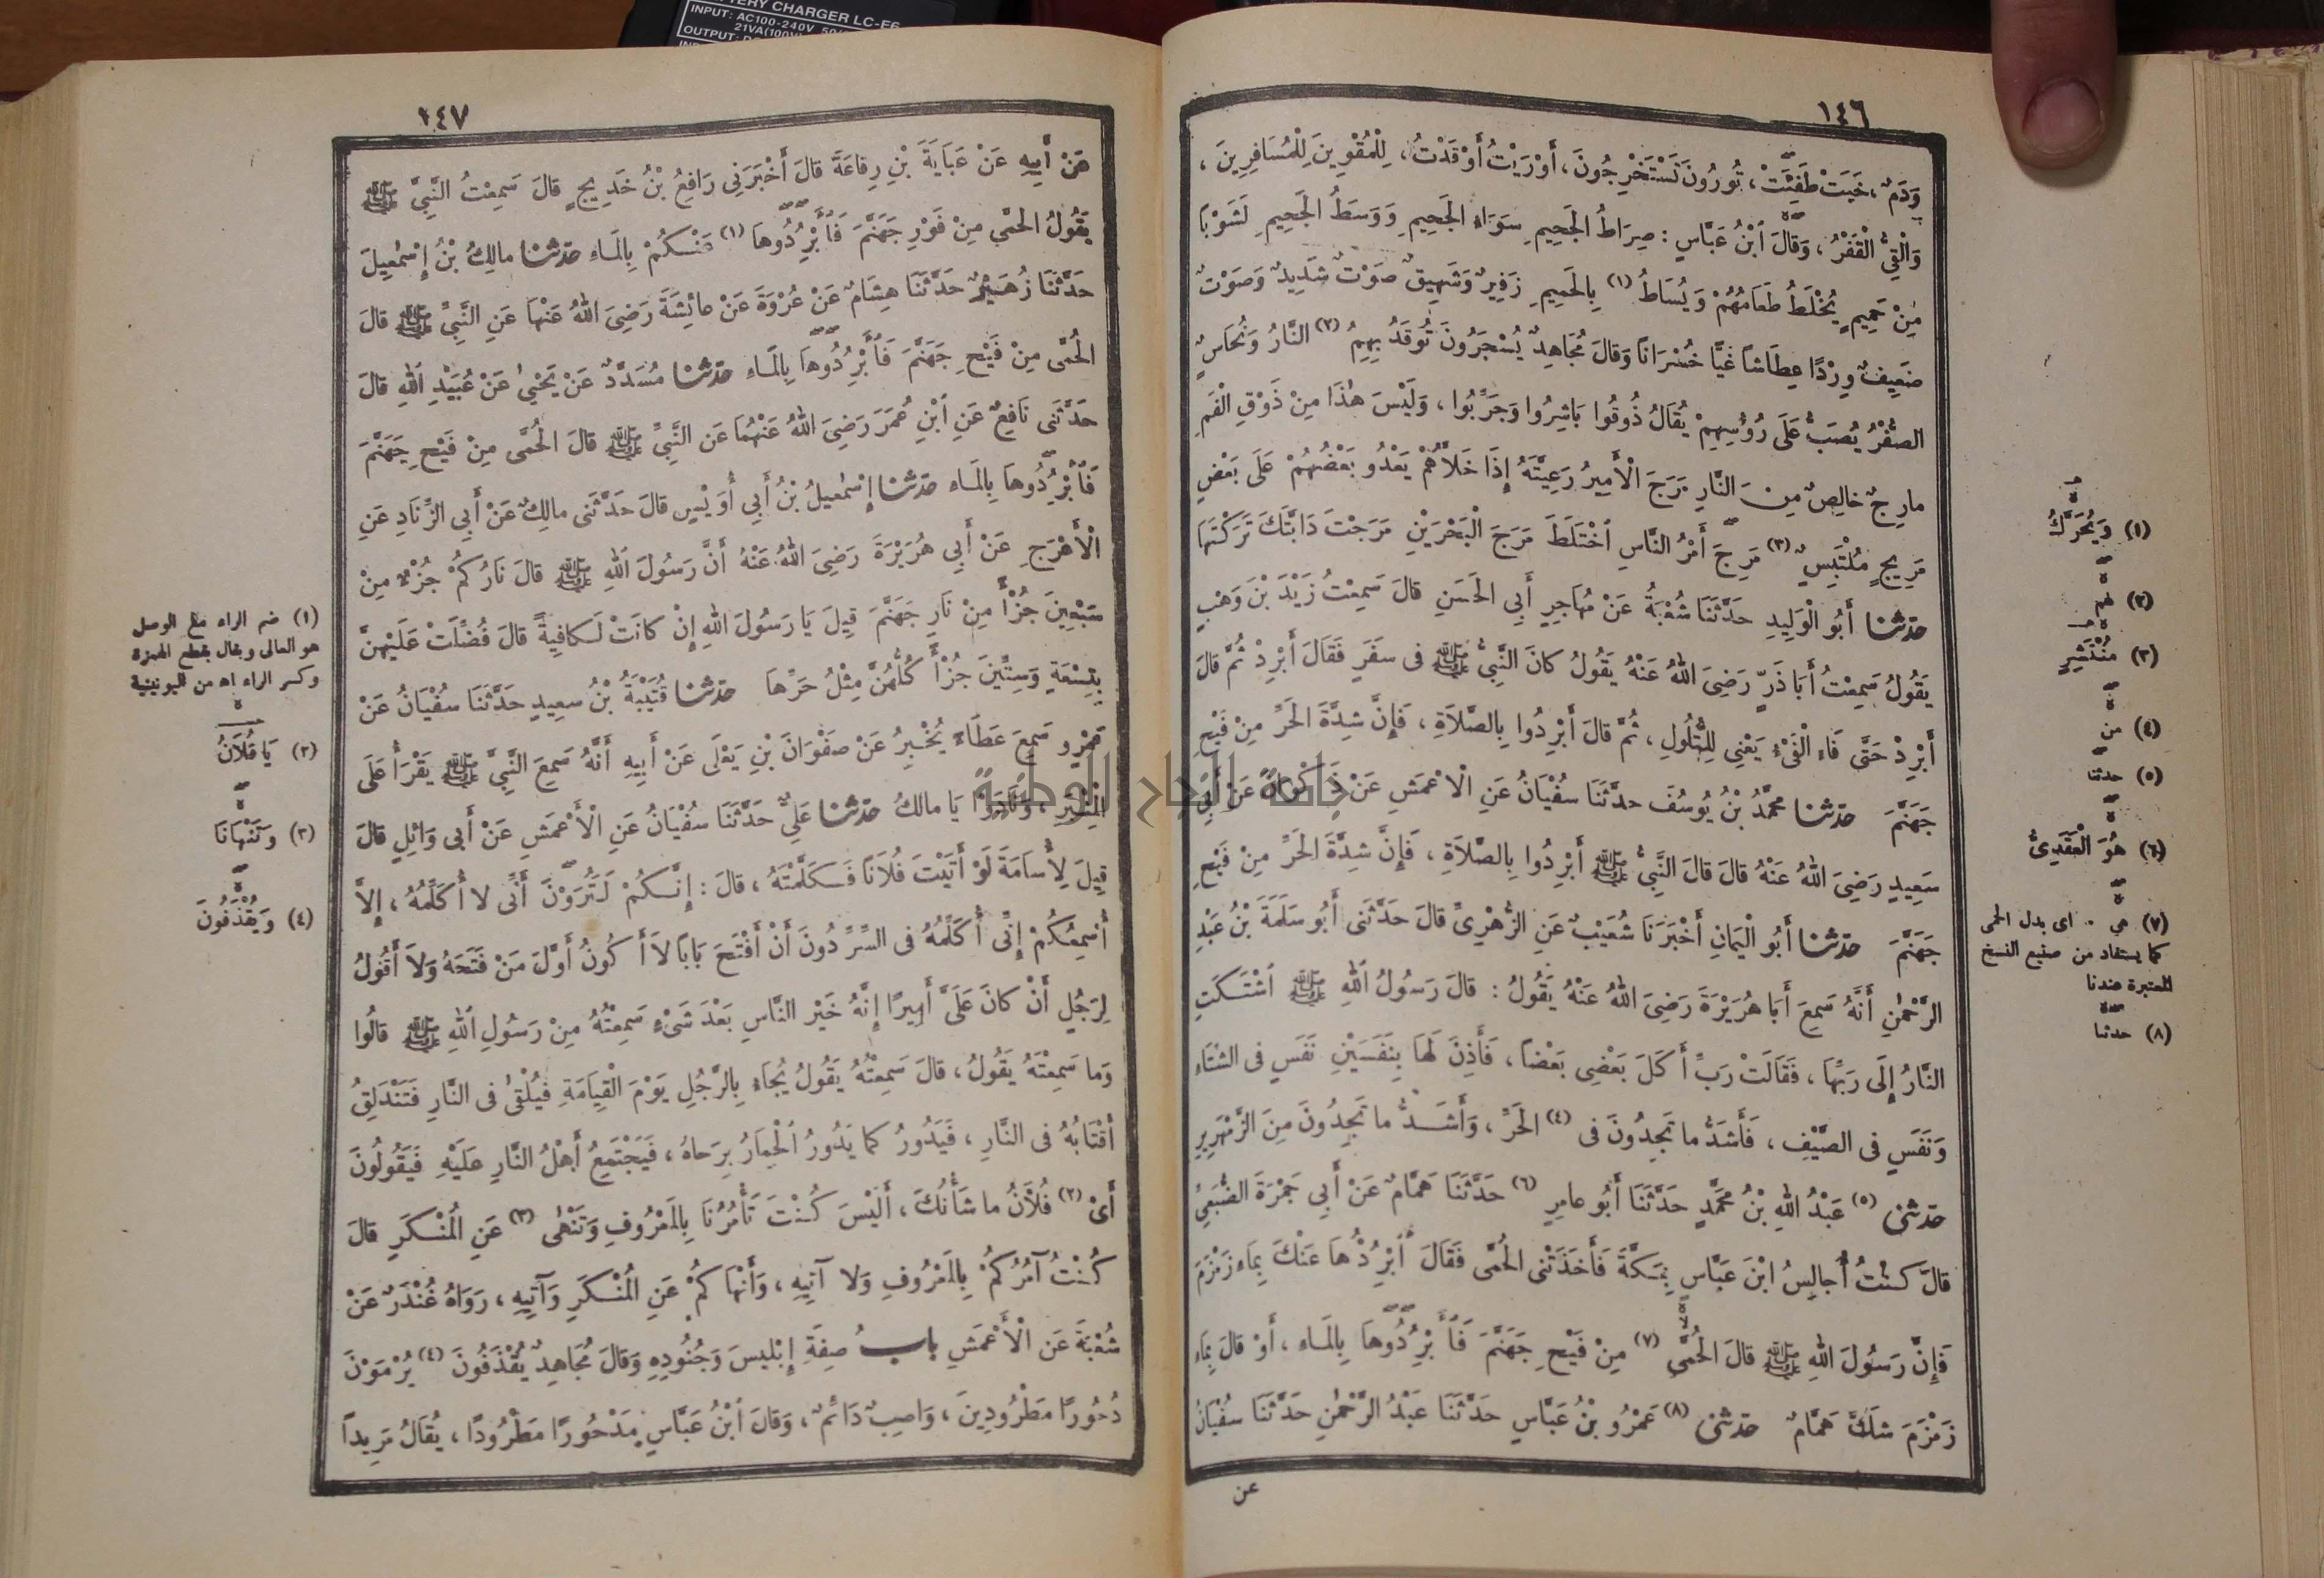 BATTERY CHARGER LC-E6
INPUT: AC100-240V 50/
21VA(100V)
OUTPUT: DC
١٤٦
وَدَمٌ ، خَبَتْ طَفِئَتْ ، تُورُونَ تَسْتَخْرِجُونَ ، أَوْرَيْتُ أَوْقَدْتُ ، لِلْمُقْوِينَ لِلْمُسَافِرِينَ ،
وَالْقِيُّ الْقَفْرُ ، وَقَالَ ابْنُ عَبَّاسٍ : صِرَاطُ الْجَحِيمِ سَوَاءُ الْجَحِيمِ وَوَسَطُ الْجَحِيمِ لَشَوْبًا
مِنْ حَمِيمٍ يُخْلَطُ طَعَامُهُمْ وَيُسَاطُ (١) بِالْحَمِيمِ زَفِيرٌ وَشَهِيقٌ صَوْتٌ شَدِيدٌ وَصَوْتٌ
ضَعِيفٌ وِرْدًا عِطَاشًا غَيًّا خُسْرَانًا وَقَالَ مُجَاهِدٌ يُسْجَرُونَ تُوقَدُ بِهِمُ (٢) النَّارُ وَنُحَاسٌ
الصُّفْرُ يُصَبُّ عَلَى رُؤُسِهِمْ يُقَالُ ذُوقُوا بَاشِرُوا وَجَرِّبُوا ، وَلَيْسَ هٰذَا مِنْ ذَوْقِ الْفَمِ
مارِجٌ خالِصٌ مِنَ النَّارِ مَرَجَ الْأَمِيرُ رَعِيَّتَهُ إِذَا خَلَّاهُمْ يَعْدُو بَعْضُهُمْ عَلَى بَعْضٍ
مَرِيجٍ مُلْتَبِسٌ (٣) مَرِجَ أَمْرُ النَّاسِ اخْتَلَطَ مَرَجَ الْبَحْرَيْنِ مَرَجْتَ دَابَّتَكَ تَرَكْتَهَا
حدثنا أَبُو الْوَلِيدِ حَدَّثَنَا شُعْبَةُ عَنْ مُهَاجِرٍ أَبِي الْحَسَنِ قالَ سَمِعْتُ زَيْدَ بْنَ وَهْبٍ
يَقُولُ سَمِعْتُ أَبَا ذَرٍّ رَضِيَ اللهُ عَنْهُ يَقُولُ كانَ النَّبِيُّ ﷺ فى سَفَرٍ فَقَالَ أَبْرِدْ ثُمَّ قالَ
أَبْرِدْ حَتَّى فَاءَ الْفَىْءُ يَعْنِي لِلتُّلُولِ ، ثُمَّ قالَ أَبْرِدُوا بِالصَّلاَةِ ، فَإِنَّ شِدَّةَ الْحَرِّ مِنْ فَيْحِ
جَهَنَّمَ حدثنا مُحَمَّدُ بْنُ يُوسُفَ حدَّثَنَا سُفْيَانُ عَنِ الْأَعْمَشِ عَنْ ذَكْوَانَ عَنْ أَبِي
سَعِيدٍ رَضِيَ اللهُ عَنْهُ قالَ قالَ النَّبِيُّ ﷺ أَبْرِدُوا بِالصَّلاَةِ ، فَإِنَّ شِدَّةَ الْحَرِّ مِنْ فَيْحِ
جَهَنَّمَ حدثنا أَبُو الْيَمَانِ أَخْبَرَنَا شُعَيْبٌ عَنِ الزُّهْرِيِّ قالَ حَدَّثَنِى أَبُو سَلَمَةَ بْنُ عَبْدِ
الرَّحْمٰنِ أَنَّهُ سَمِعَ أَبَا هُرَيْرَةَ رَضِيَ اللهُ عَنْهُ يَقُولُ : قالَ رَسُولُ اللهِ ﷺ اشْتَكَتِ
النَّارُ إِلَى رَبِّهَا ، فَقَالَتْ رَبِّ أَكَلَ بَعْضِى بَعْضًا ، فَأَذِنَ لَهَا بِنَفَسَيْنِ نَفَسٍ فى الشِّتَاءِ
وَنَفَسٍ فى الصَّيْفِ ، فَأَشَدُّ ما تَجِدُونَ فى (٤) الْحَرِّ ، وَأَشَدُّ ما تَجِدُونَ مِنَ الزَّمْهَرِيرِ
حدثنى (٥) عَبْدُ اللهِ بْنُ مُحَمَّدٍ حَدَّثَنَا أَبُو عامِرٍ (٦) حَدَّثَنَا هَمَّامٌ عَنْ أَبِي جَمْرَةَ الضُّبَعِيِّ
قالَ كنْتُ أُجالِسُ ابْنَ عَبَّاسٍ بِمَكَّةَ فَأَخَذَتْنِى الْحُمَّى فَقَالَ أَبْرِدْهَا عَنْكَ بِمَاءِ زَمْزَمَ
فَإِنَّ رَسُولَ اللهِ ﷺ قالَ الْحُمَّى (٧) مِنْ فَيْحِ جَهَنَّمَ فَأَبْرِدُوهَا بِالْمَاءِ ، أَوْ قالَ بِمَاءِ
زَمْزَمَ شَكَّ هَمَّامٌ حدثنى (٨) عَمْرُو بْنُ عَبَّاسٍ حَدَّثَنَا عَبْدُ الرَّحْمٰنِ حَدَّثَنَا سُفْيَانُ
عن
(١) وَيُحَرَّكُ
(٢) لهم
(٣) مُنْتَشِرٍ
(٤) من
(٥) حدثنا
(٦) هُوَ الْعَقَدِىُّ
(٧) هى . اى بدل الحمى
كما يستفاد من صنيع النسخ
المعتبرة عندنا
(٨) حدثنا
١٤٧
عَنْ أَبِيهِ عَنْ عَبَايَةَ بْنِ رِفاعَةَ قالَ أَخْبَرَنِى رَافِعُ بْنُ خَدِيجٍ قالَ سَمِعْتُ النَّبِيَّ ﷺ
يَقُولُ الْحُمَّى مِنْ فَوْرِ جَهَنَّمَ فَأَبْرِدُوهَا (١) عَنْكُمْ بِالْمَاءِ حدثنا مالِكُ بْنُ إِسْمٰعِيلَ
حَدَّثَنَا زُهَيْرٌ حَدَّثَنَا هِشَامٌ عَنْ عُرْوَةَ عَنْ عائِشَةَ رَضِيَ اللهُ عَنْهَا عَنِ النَّبِيِّ ﷺ قالَ
الْحُمَّى مِنْ فَيْحِ جَهَنَّمَ فَأَبْرِدُوهَا بِالْمَاءِ حدثنا مُسَدَّدٌ عَنْ يَحْيٰى عَنْ عُبَيْدِ اللهِ قالَ
حَدَّثَنِى نَافِعٌ عَنِ ابْنِ عُمَرَ رَضِيَ اللهُ عَنْهُمَا عَنِ النَّبِيِّ ﷺ قالَ الْحُمَّى مِنْ فَيْحِ جَهَنَّمَ
فَأَبْرِدُوهَا بِالْمَاءِ حدثنا إِسْمٰعِيلُ بْنُ أَبِي أُوَيْسٍ قالَ حَدَّثَنِى مالِكٌ عَنْ أَبِي الزِّنَادِ عَنِ
الْأَعْرَجِ عَنْ أَبِي هُرَيْرَةَ رَضِيَ اللهُ عَنْهُ أَنَّ رَسُولَ اللهِ ﷺ قالَ نَارُكُمْ جُزْءٌ مِنْ
سَبْعِينَ جُزْأً مِنْ نَارِ جَهَنَّمَ قِيلَ يَا رَسُولَ اللهِ إِنْ كانَتْ لَكافِيَةً قالَ فُضِّلَتْ عَلَيْهِنَّ
بِتِسْعَةٍ وَسِتِّينَ جُزْأً كُلُّهُنَّ مِثْلُ حَرِّهَا حدثنا قُتَيْبَةُ بْنُ سعِيدٍ حَدَّثَنَا سُفْيَانُ عَنْ
عَمْرٍو سَمِعَ عَطَاءً يُخْبِرُ عَنْ صَفْوَانَ بْنِ يَعْلَى عَنْ أَبِيهِ أَنَّهُ سَمِعَ النَّبِيَّ ﷺ يَقْرَأُ عَلَى
الْمِنْبَرِ ، وَنَادَوْا يَا مالكُ حدثنا عَلِيٌّ حَدَّثَنَا سُفْيَانُ عَنِ الْأَعْمَشِ عَنْ أَبِى وَائِلٍ قالَ
قِيلَ لِأُسامَةَ لَوْ أَتَيْتَ فُلاَنًا فَكَلَّمْتَهُ ، قالَ : إِنَّكُمْ لَتَرَوْنَ أَنِّى لا أُكَلِّمُهُ ، إِلاَّ
أُسْمِعُكُمْ إِنِّى أُكَلِّمُهُ فى السِّرِّ دُونَ أَنْ أَفْتَحَ بَابًا لاَ أَكُونُ أَوَّلَ مَنْ فَتَحَهُ وَلاَ أَقُولُ
لِرَجُلٍ أَنْ كانَ عَلَيَّ أَمِيرًا إِنَّهُ خَيْرُ النَّاسِ بَعْدَ شَىْءٍ سَمِعْتُهُ مِنْ رَسُولِ اللهِ ﷺ قالُوا
وَما سَمِعْتَهُ يَقُولُ ، قالَ سَمِعْتُهُ يَقُولُ يُجَاءُ بِالرَّجُلِ يَوْمَ الْقِيَامَةِ فَيُلْقٰى فى النَّارِ فَتَنْدَلِقُ
أَقْتَابُهُ فى النَّارِ ، فَيَدُورُ كما يَدُورُ الْحِمَارُ بِرَحاهُ ، فَيَجْتَمِعُ أَهْلُ النَّارِ عَلَيْهِ فَيَقُولُونَ
أَىْ (٢) فُلاَنُ ما شَأْنُكَ ، أَلَيْسَ كُنْتَ تَأْمُرُنَا بِالْمَعْرُوفِ وَتَنْهٰى (٣) عَنِ الْمُنْكَرِ قالَ
كُنْتُ آمُرُكُمْ بِالْمَعْرُوفِ وَلا آتِيهِ ، وَأَنْهَاكُمْ عَنِ الْمُنْكَرِ وَآتِيهِ ، رَوَاهُ غُنْدَرٌ عَنْ
شُعْبَةَ عَنِ الْأَعْمَشِ بابُ صِفَةِ إِبْلِيسَ وَجُنُودِهِ وَقالَ مُجَاهِدٌ يُقْذَفُونَ (٤) يُرْمَوْنَ
دُحُورًا مَطْرُودِينَ ، وَاصِبٌ دَائمٌ ، وَقالَ ابْنُ عَبَّاسٍ مَدْحُورًا مَطْرُودًا ، يُقَالُ مَرِيداً
(١) ضم الراء مع الوصل
هو العالى ويقال بقطع الهمزة
وكسر الراء اه من اليونينية
(٢) يَا فُلاَنُ
(٣) وَتَنْهَانَا
(٤) وَيُقْذَفُونَ
جامعة النجاح الوطنية